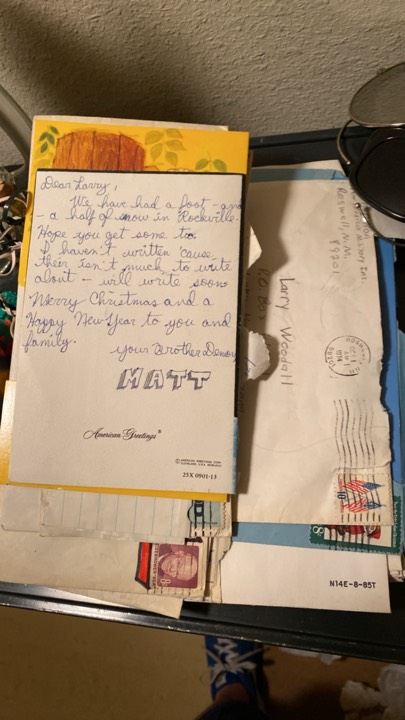 Dear Larry,
We have had a foot - and
- a half of snow in Rockville.
Hope you get some to.
I haven't written 'cause
their isn't much to write
about - will write soon
Merry Christmas and a
Happy New Year to you and
family.
your Brother Demon
MATT
American Greetings®
© AMERICAN GREETINGS CORP.
CLEVELAND, U.S.A.
25X 0901-13
Roswell, N.M.
88201
Larry Woodall
P.O. Box
N14E-8-85T